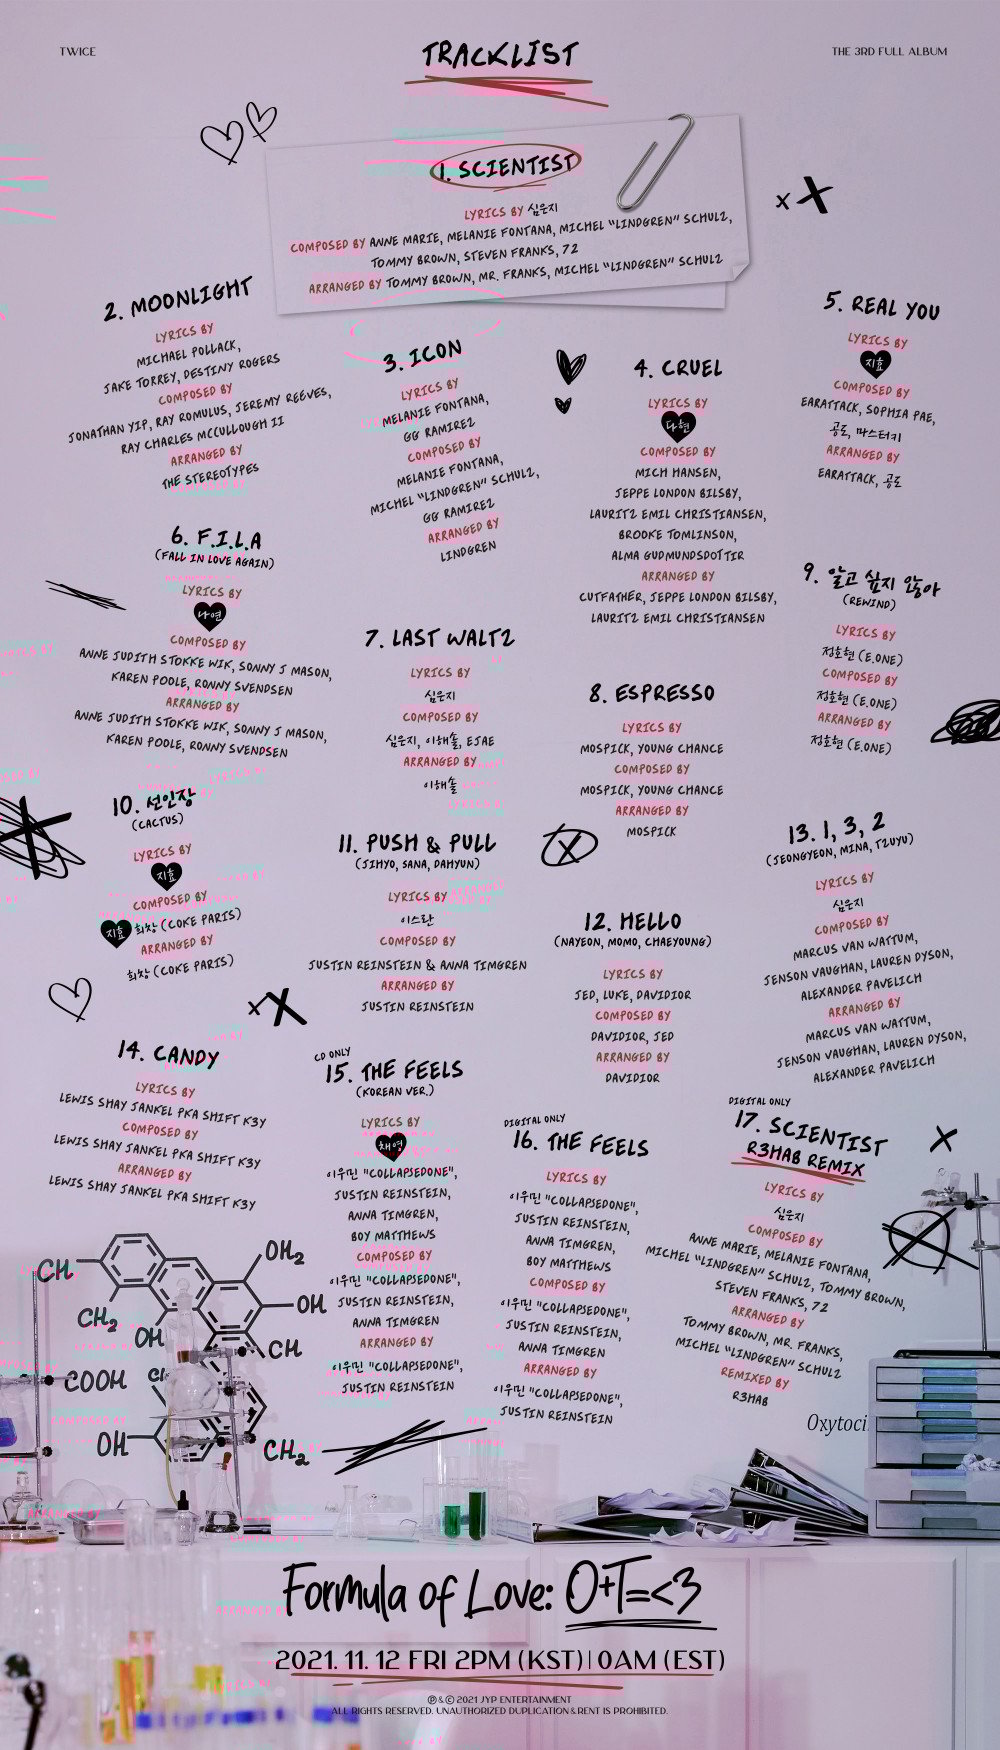 TWICE
TRACKLIST
THE 3RD FULL ALBUM
1. SCIENTIST
LYRICS BY 심은지
COMPOSED BY ANNE MARIE, MELANIE FONTANA, MICHEL "LINDGREN" SCHULZ,
TOMMY BROWN, STEVEN FRANKS, 72
ARRANGED BY TOMMY BROWN, MR. FRANKS, MICHEL "LINDGREN" SCHULZ
2. MOONLIGHT
LYRICS BY
MICHAEL POLLACK,
JAKE TORREY, DESTINY ROGERS
COMPOSED BY
JONATHAN YIP, RAY ROMULUS, JEREMY REEVES,
RAY CHARLES MCCULLOUGH II
ARRANGED BY
THE STEREOTYPES
3. ICON
LYRICS BY
MELANIE FONTANA,
GG RAMIREZ
COMPOSED BY
MELANIE FONTANA,
MICHEL "LINDGREN" SCHULZ,
GG RAMIREZ
ARRANGED BY
LINDGREN
4. CRUEL
LYRICS BY
다현
COMPOSED BY
MICH HANSEN,
JEPPE LONDON BILSBY,
LAURITZ EMIL CHRISTIANSEN,
BROOKE TOMLINSON,
ALMA GUDMUNDSDOTTIR
ARRANGED BY
CUTFATHER, JEPPE LONDON BILSBY,
LAURITZ EMIL CHRISTIANSEN
5. REAL YOU
LYRICS BY
지효
COMPOSED BY
EARATTACK, SOPHIA PAE,
공도, 마스터키
ARRANGED BY
EARATTACK, 공도
6. F.I.L.A
(FALL IN LOVE AGAIN)
LYRICS BY
나연
COMPOSED BY
ANNE JUDITH STOKKE WIK, SONNY J MASON,
KAREN POOLE, RONNY SVENDSEN
ARRANGED BY
ANNE JUDITH STOKKE WIK, SONNY J MASON,
KAREN POOLE, RONNY SVENDSEN
7. LAST WALTZ
LYRICS BY
심은지
COMPOSED BY
심은지, 이해솔, EJAE
ARRANGED BY
이해솔
8. ESPRESSO
LYRICS BY
MOSPICK, YOUNG CHANCE
COMPOSED BY
MOSPICK, YOUNG CHANCE
ARRANGED BY
MOSPICK
9. 알고 싶지 않아
(REWIND)
LYRICS BY
정호현 (E.ONE)
COMPOSED BY
정호현 (E.ONE)
ARRANGED BY
정호현 (E.ONE)
10. 선인장
(CACTUS)
LYRICS BY
지효
COMPOSED BY
지효 희찬 (COKE PARIS)
ARRANGED BY
희찬 (COKE PARIS)
11. PUSH & PULL
(JIHYO, SANA, DAHYUN)
LYRICS BY
이스란
COMPOSED BY
JUSTIN REINSTEIN & ANNA TIMGREN
ARRANGED BY
JUSTIN REINSTEIN
12. HELLO
(NAYEON, MOMO, CHAEYOUNG)
LYRICS BY
JED, LUKE, DAVIDIOR
COMPOSED BY
DAVIDIOR, JED
ARRANGED BY
DAVIDIOR
13. 1, 3, 2
(JEONGYEON, MINA, TZUYU)
LYRICS BY
심은지
COMPOSED BY
MARCUS VAN WATTUM,
JENSON VAUGHAN, LAUREN DYSON,
ALEXANDER PAVELICH
ARRANGED BY
MARCUS VAN WATTUM,
JENSON VAUGHAN, LAUREN DYSON,
ALEXANDER PAVELICH
14. CANDY
LYRICS BY
LEWIS SHAY JANKEL PKA SHIFT K3Y
COMPOSED BY
LEWIS SHAY JANKEL PKA SHIFT K3Y
ARRANGED BY
LEWIS SHAY JANKEL PKA SHIFT K3Y
CD ONLY
15. THE FEELS
(KOREAN VER.)
LYRICS BY
채영
이우민 "COLLAPSEDONE",
JUSTIN REINSTEIN,
ANNA TIMGREN,
BOY MATTHEWS
COMPOSED BY
이우민 "COLLAPSEDONE",
JUSTIN REINSTEIN,
ANNA TIMGREN
ARRANGED BY
이우민 "COLLAPSEDONE",
JUSTIN REINSTEIN
DIGITAL ONLY
16. THE FEELS
LYRICS BY
이우민 "COLLAPSEDONE",
JUSTIN REINSTEIN,
ANNA TIMGREN,
BOY MATTHEWS
COMPOSED BY
이우민 "COLLAPSEDONE",
JUSTIN REINSTEIN,
ANNA TIMGREN
ARRANGED BY
이우민 "COLLAPSEDONE",
JUSTIN REINSTEIN
DIGITAL ONLY
17. SCIENTIST
R3HAB REMIX
LYRICS BY
심은지
COMPOSED BY
ANNE MARIE, MELANIE FONTANA,
MICHEL "LINDGREN" SCHULZ, TOMMY BROWN,
STEVEN FRANKS, 72
ARRANGED BY
TOMMY BROWN, MR. FRANKS,
MICHEL "LINDGREN" SCHULZ
REMIXED BY
R3HAB
CH
OH2
CH2
OH
OH
CH
COOH
Cl
OH
CH2
Oxytoci
Formula of Love: O+T=<3
2021. 11. 12 FRI 2PM (KST) | 0AM (EST)
Ⓟ & © 2021 JYP ENTERTAINMENT
ALL RIGHTS RESERVED. UNAUTHORIZED DUPLICATION & RENT IS PROHIBITED.